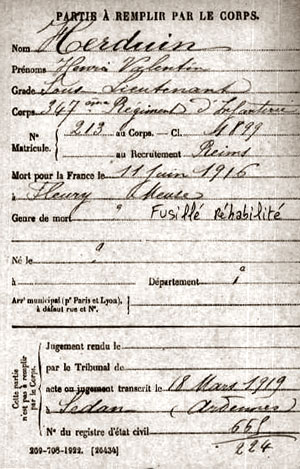 PARTIE À REMPLIR PAR LE CORPS.
Nom Herduin
Prénoms Henri Valentin
Grade Sous Lieutenant
Corps 347 ème Régiment d'Infanterie
N° 213 au Corps. — Cl. 1899
Matricule. au Recrutement Reims
Mort pour la France le 11 juin 1916
à Fleury Meuse
Genre de mort Fusillé Réhabilité
Né le
à Département
Arr' municipal (p' Paris et Lyon),
à défaut rue et N°.
Cette partie
n'est pas à remplir
par le Corps.
Jugement rendu le
par le Tribunal de
acte ou jugement transcrit le 18 Mars 1919
à Sedan (Ardennes)
N° du registre d'état civil
224
269-708-1922. [26434]